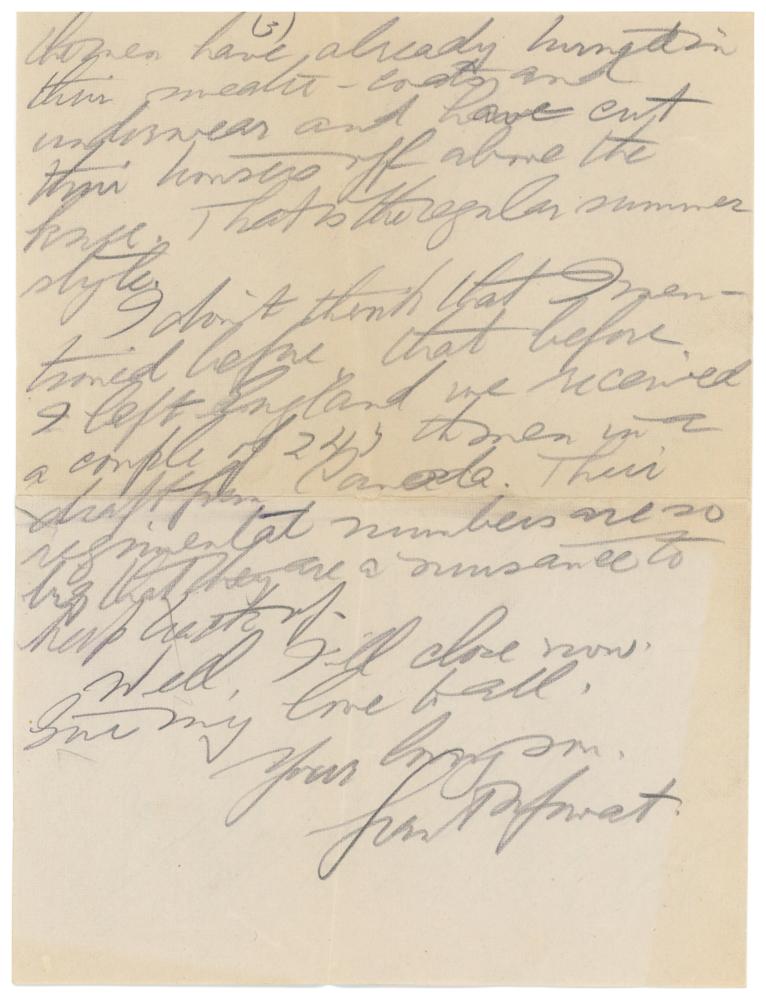 (3)
the men have already turned in
their sweater-coats and
underwear and have cut
their trousers off above the
knee. That is the regular summer
style.
I don't think that I men-
tioned before, that before
I left England we received
a couple of 245th men in a
draft from Canada. Their
regimental numbers are so
big that they are a nuisance to
keep track of.
Well, I'll close now.
Give my love to all.
Your loving son.